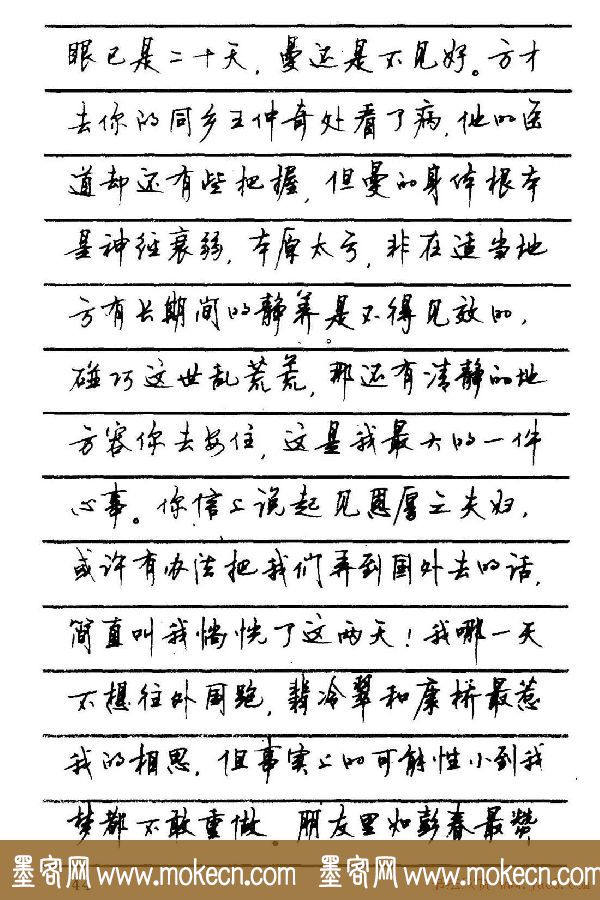 眼已是二十天，曼还是不见好。方才
去你的同乡王仲奇处看了病，他的医
道却还有些把握，但曼的身体根本
是神经衰弱，本原太亏，非在适当地
方有长期间的静养是不得见效的，
碰巧这世乱荒荒，那还有清静的地
方容你去安住，这是我最大的一件
心事。你信上说起见恩厚之夫妇，
或许有办法把我们弄到国外去的话，
简直叫我惝恍了这两天！我哪一天
不想往外国跑，翡冷翠和康桥最惹
我的相思，但事实上的可能性小到我
梦都不敢重做。朋友里如彭春最赞
墨客网 www.mokecn.com 墨客网 www.mokecn.com
44